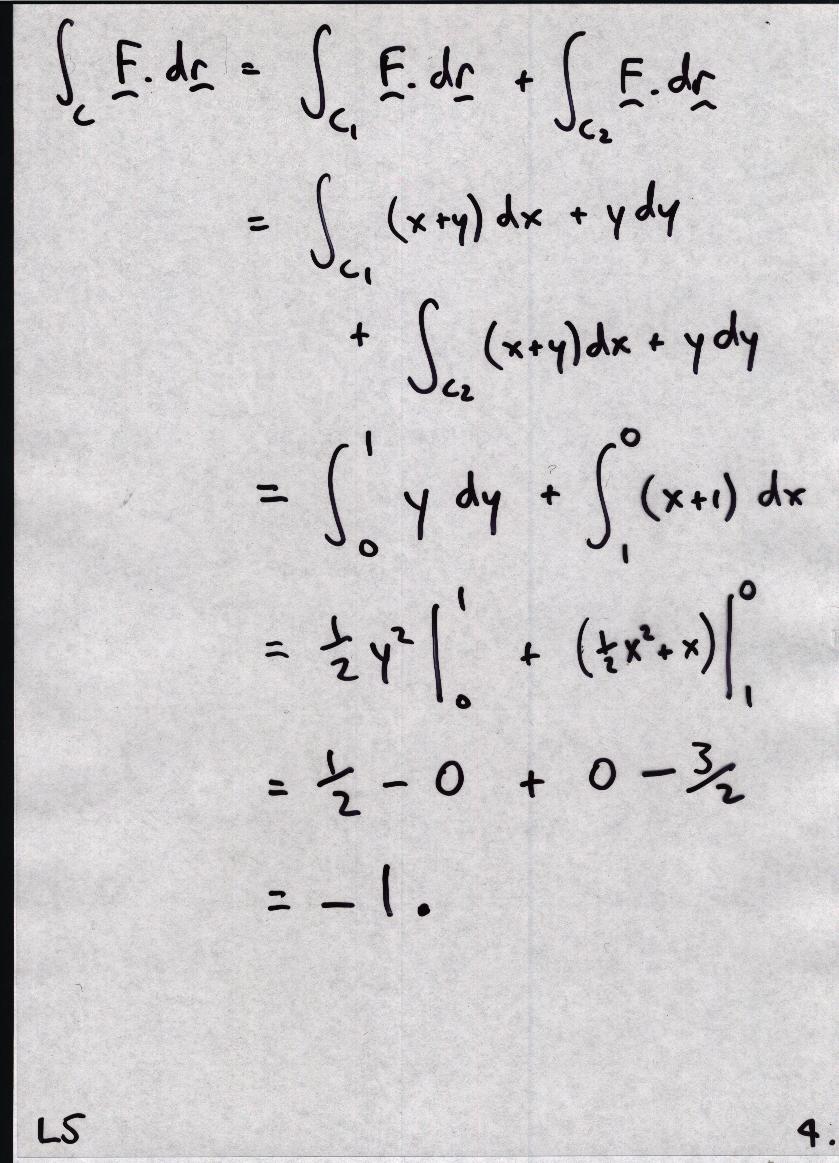 ∫_C F̰ . dr̰ = ∫_{C₁} F̰ . dr̰ + ∫_{C₂} F̰ . dr̰
= ∫_{C₁} (x+y) dx + y dy
+ ∫_{C₂} (x+y) dx + y dy
= ∫₀¹ y dy + ∫₁⁰ (x+1) dx
= ½ y² |₀¹ + (½ x² + x) |₁⁰
= ½ - 0 + 0 - 3/2
= - 1 .
L5 4.